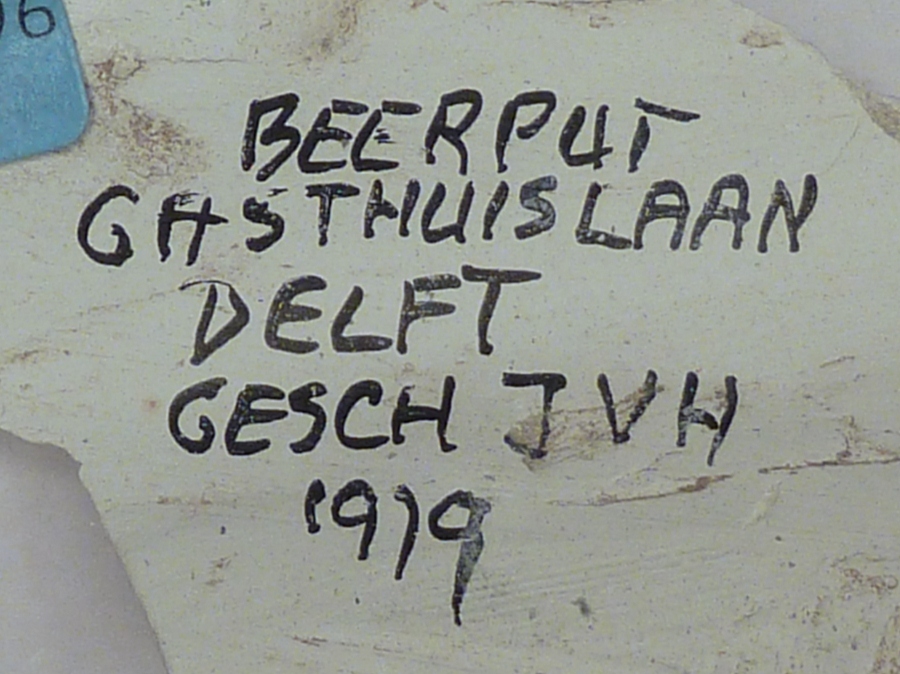 96
BEERPUT
GASTHUISLAAN
DELFT
GESCH JVH
1979